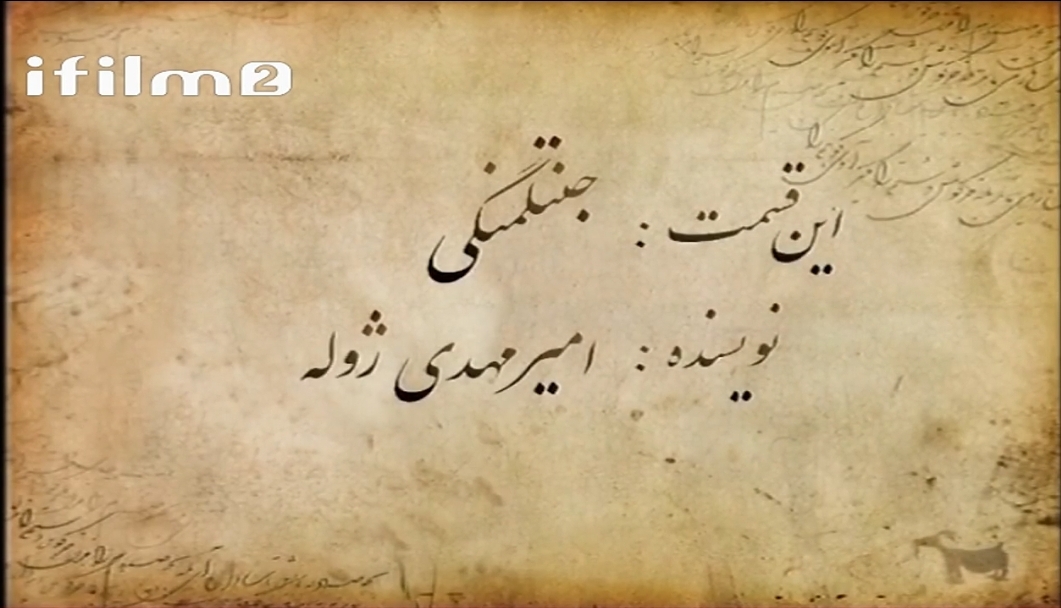 ifilm2
این قسمت : جنتلمنگی
نویسنده : امیرمهدی ژوله